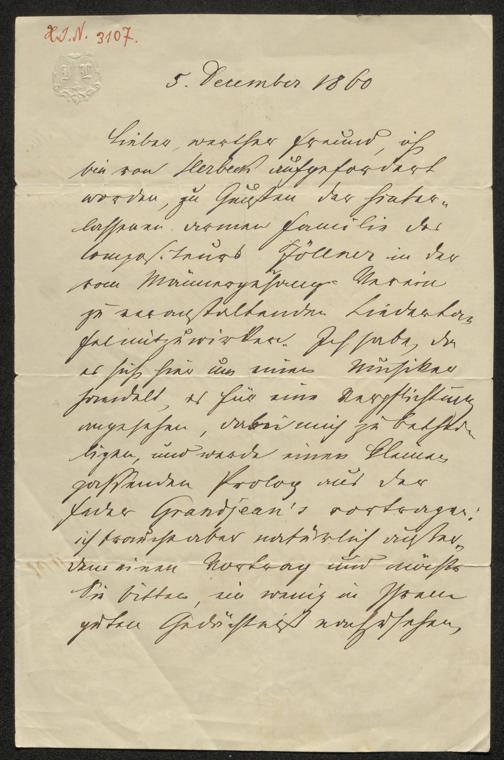 H.I.N. 3107.
5. December 1860
Lieber, werther Freund, ich
bin von Herbeck aufgefordert
worden, zu Gunsten der hinter-
lassenen armen Familie des
Compositeurs Zöllner in der
vom Männergesang-Verein
zu veranstaltenden Liederta-
fel mitzuwirken. Ich habe, da
es sich hier um einen Musiker
handelt, es für eine Verpflichtung
angesehen, dabei mich zu bethei-
ligen, und werde einen kleinen
passenden Prolog aus der
Feder Grandjean's vortragen;
ich brauche aber natürlich außer-
dem einen Vortrag und möchte
Sie bitten, ein wenig in Ihrem
guten Gedächtniß nachzusehen,